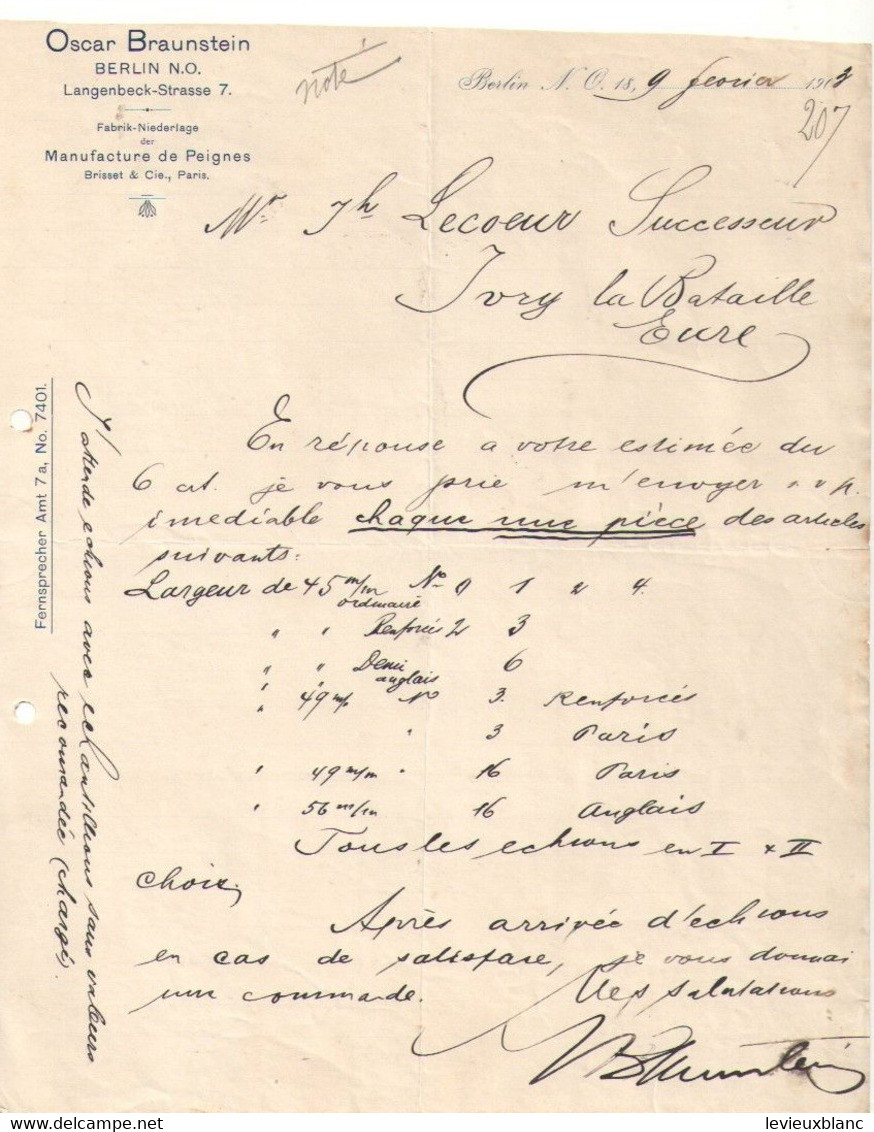 Oscar Braunstein
BERLIN N.O.
Langenbeck-Strasse 7.
Fabrik-Niederlage
der
Manufacture de Peignes
Brisset & Cie., Paris.
noté
Berlin N. O. 18, 9 fevrier 1913
207
Mr. Jh Lecoeur Successeur
Ivry la Bataille
Eure
En réponse a votre estimée du
6 crt. je vous prie m'envoyer s.v.p.
imediable chaque une pièce des articles
suivants:
Largeur de 45 m/m No 0 1 2 4.
ordinaire
" " Renforcés 2 3
" " Demi 6
anglais
" 49 m/m No 3. Renforcés
" 3 Paris
" 49 m/m " 16 Paris
" 56 m/m 16 Anglais
Tous les echions en I & II
choix,
Après arrivée d'echions
en cas de satisfare, je vous donnai
une commande. Mes salutations
OBraunstein
Fernsprecher Amt 7a, No. 7401.
J'attende echions avec echantillions sans valeurs
recomandée (chargé).
www.delcampe.net
levieuxblanc